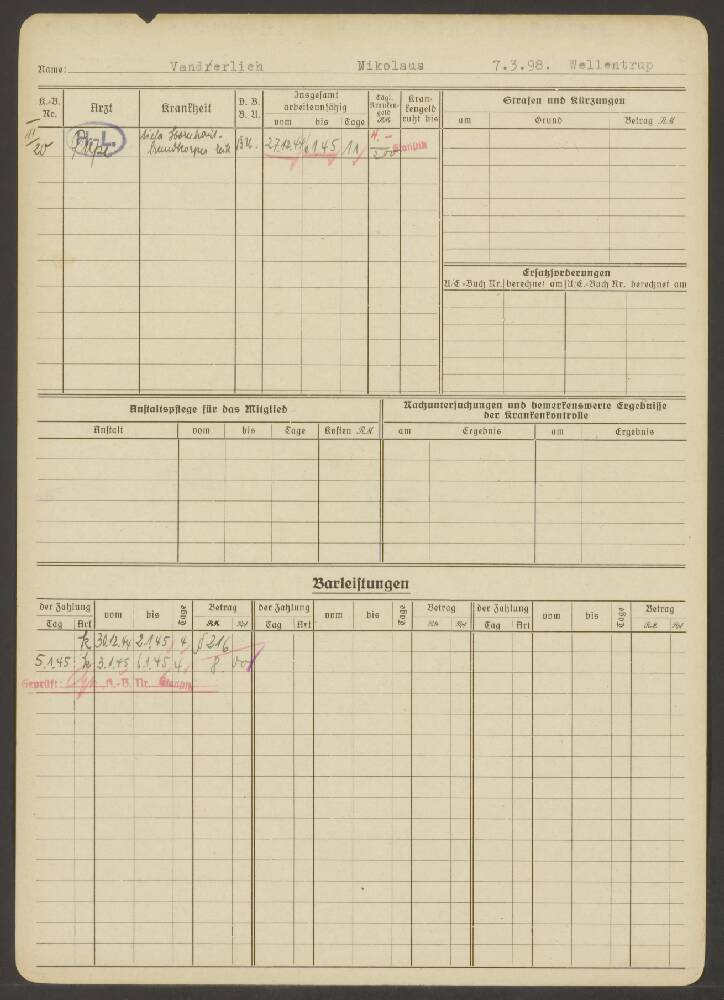 Name: Vandrerlich Nikolaus 7.3.98. Wellentrup
K.-B. Nr. Arzt Krankheit B. B. B. U. Insgesamt arbeitsunfähig vom bis Tage Tägl. Kranken-geld RM Kran-kengeld ruht bis
Strafen und Kürzungen
am Grund Betrag RM
III/20 H.-L. BU. 27.12.44 6.1.45 11 4.- 200
Ersatzforderungen
A/E.-Buch Nr. berechnet am A/E.-Buch Nr. berechnet am
Anstaltspflege für das Mitglied
Anstalt vom bis Tage Kosten RM
Nachuntersuchungen und bemerkenswerte Ergebnisse
der Krankenkontrolle
am Ergebnis am Ergebnis
Barleistungen
der Zahlung vom bis Tage Betrag der Zahlung vom bis Tage Betrag der Zahlung vom bis Tage Betrag
Tag Art RM Rpf Tag Art RM Rpf Tag Art RM Rpf
k 30.12.44 2.1.45 4 § 216
5.1.45 k 3.1.45 6.1.45 4 8 00
Geprüft: K.-B. Nr.